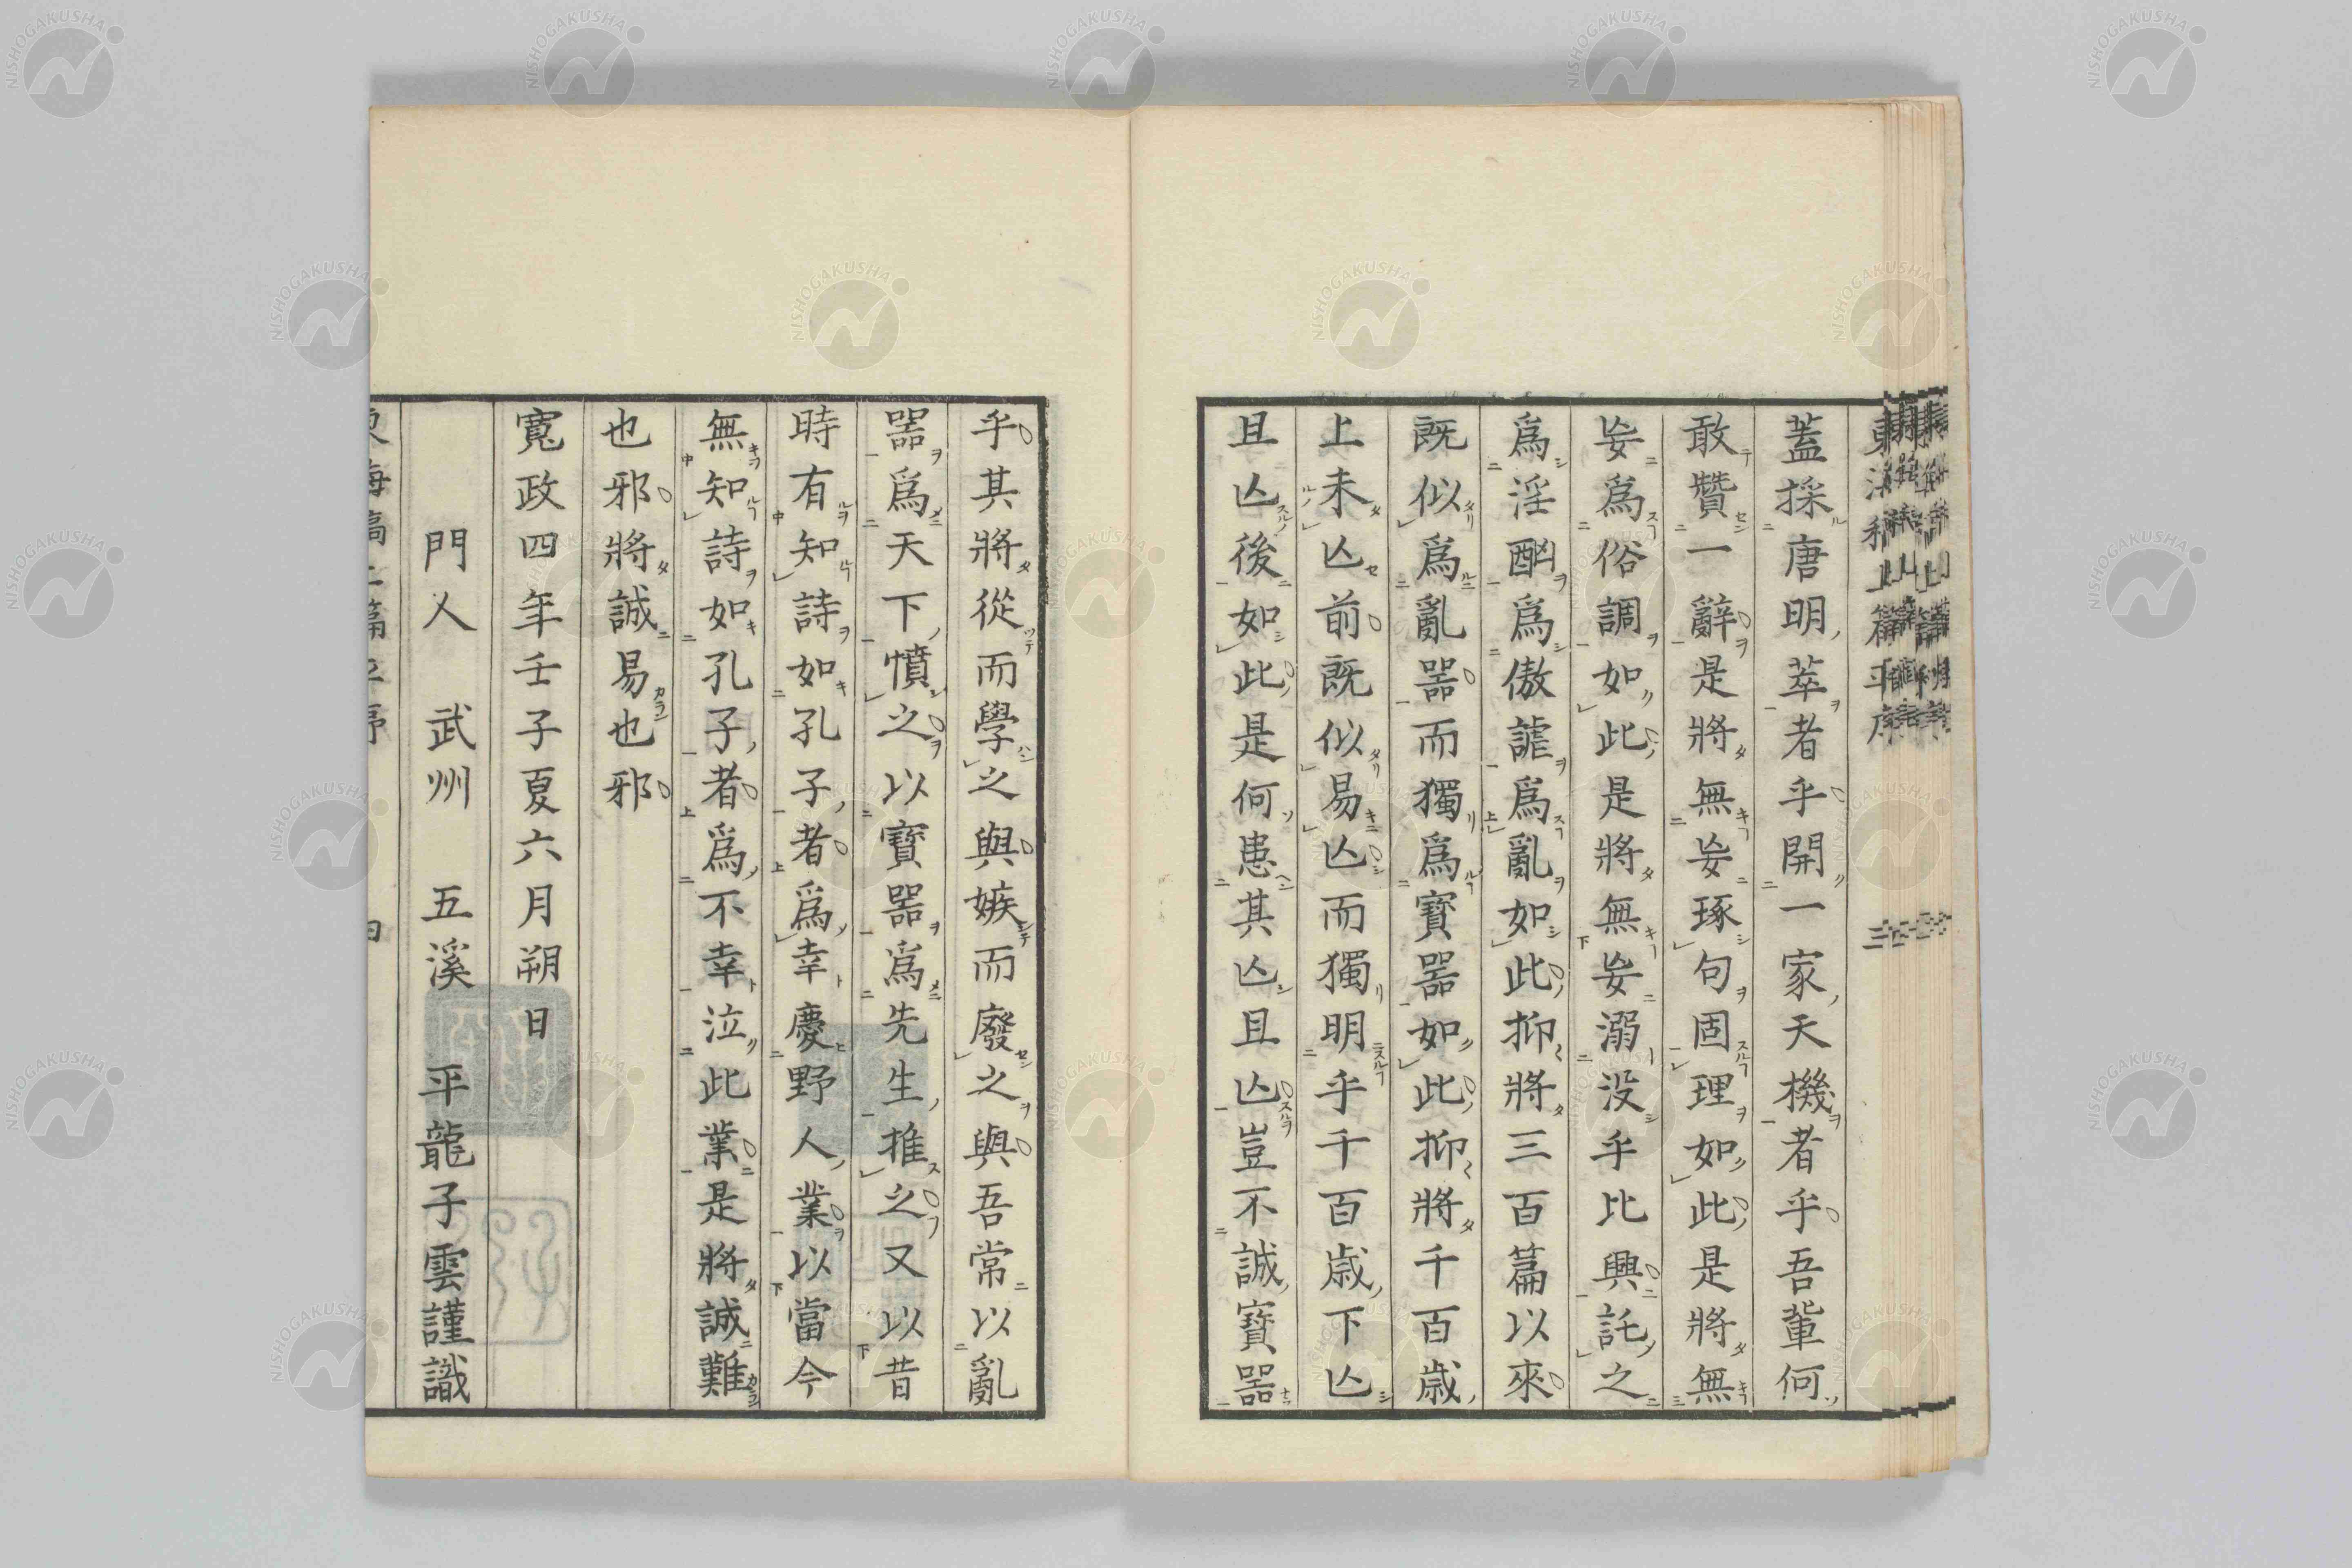 蓋採唐明萃者乎開一家天機者乎吾輩何
敢贊一辭是將無妄琢句固理如此是將無
妄爲俗調如此是將無妄溺没乎比興託之
爲淫酗爲傲謔爲亂如此抑將三百篇以來
既似爲亂噐而獨爲寶噐如此抑將千百歳
上未亾前既似易亾而獨明乎千百歳下亾
且亾後如此是何患其亾且亾豈不誠寶噐
乎其將從而學之與嫉而廢之與吾常以亂
噐爲天下憤之以寶噐爲先生推之又以昔
時有知詩如孔子者爲幸慶野人業以當今
無知詩如孔子者爲不幸泣此業是將誠難
也邪將誠易也邪
寬政四年壬子夏六月朔日
門人　武州　五溪　平龍子雲謹識
NISHOGAKUSHA